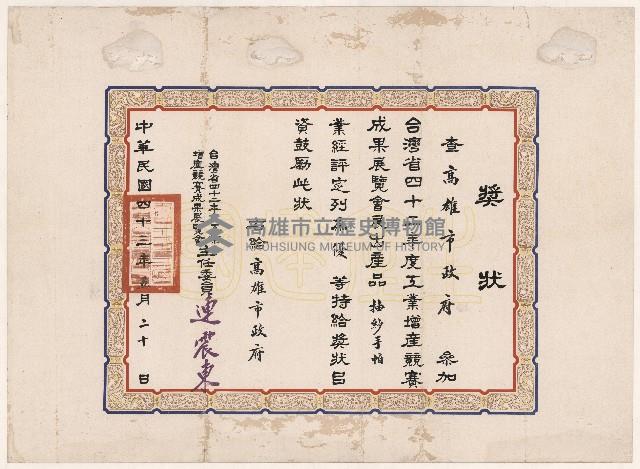 獎狀
查高雄市政府參加
台灣省四十二年度工業增產競賽
成果展覽會展出產品抽紗手帕
業經評定列為優等特給獎狀以
資鼓勵此狀
右給高雄市政府
台灣省四十二年
增產競賽成果展覽會
主任委員連震東
中華民國四十三年 月二十日
高雄市立歷史博物館
KAOHSIUNG MUSEUM OF HISTORY